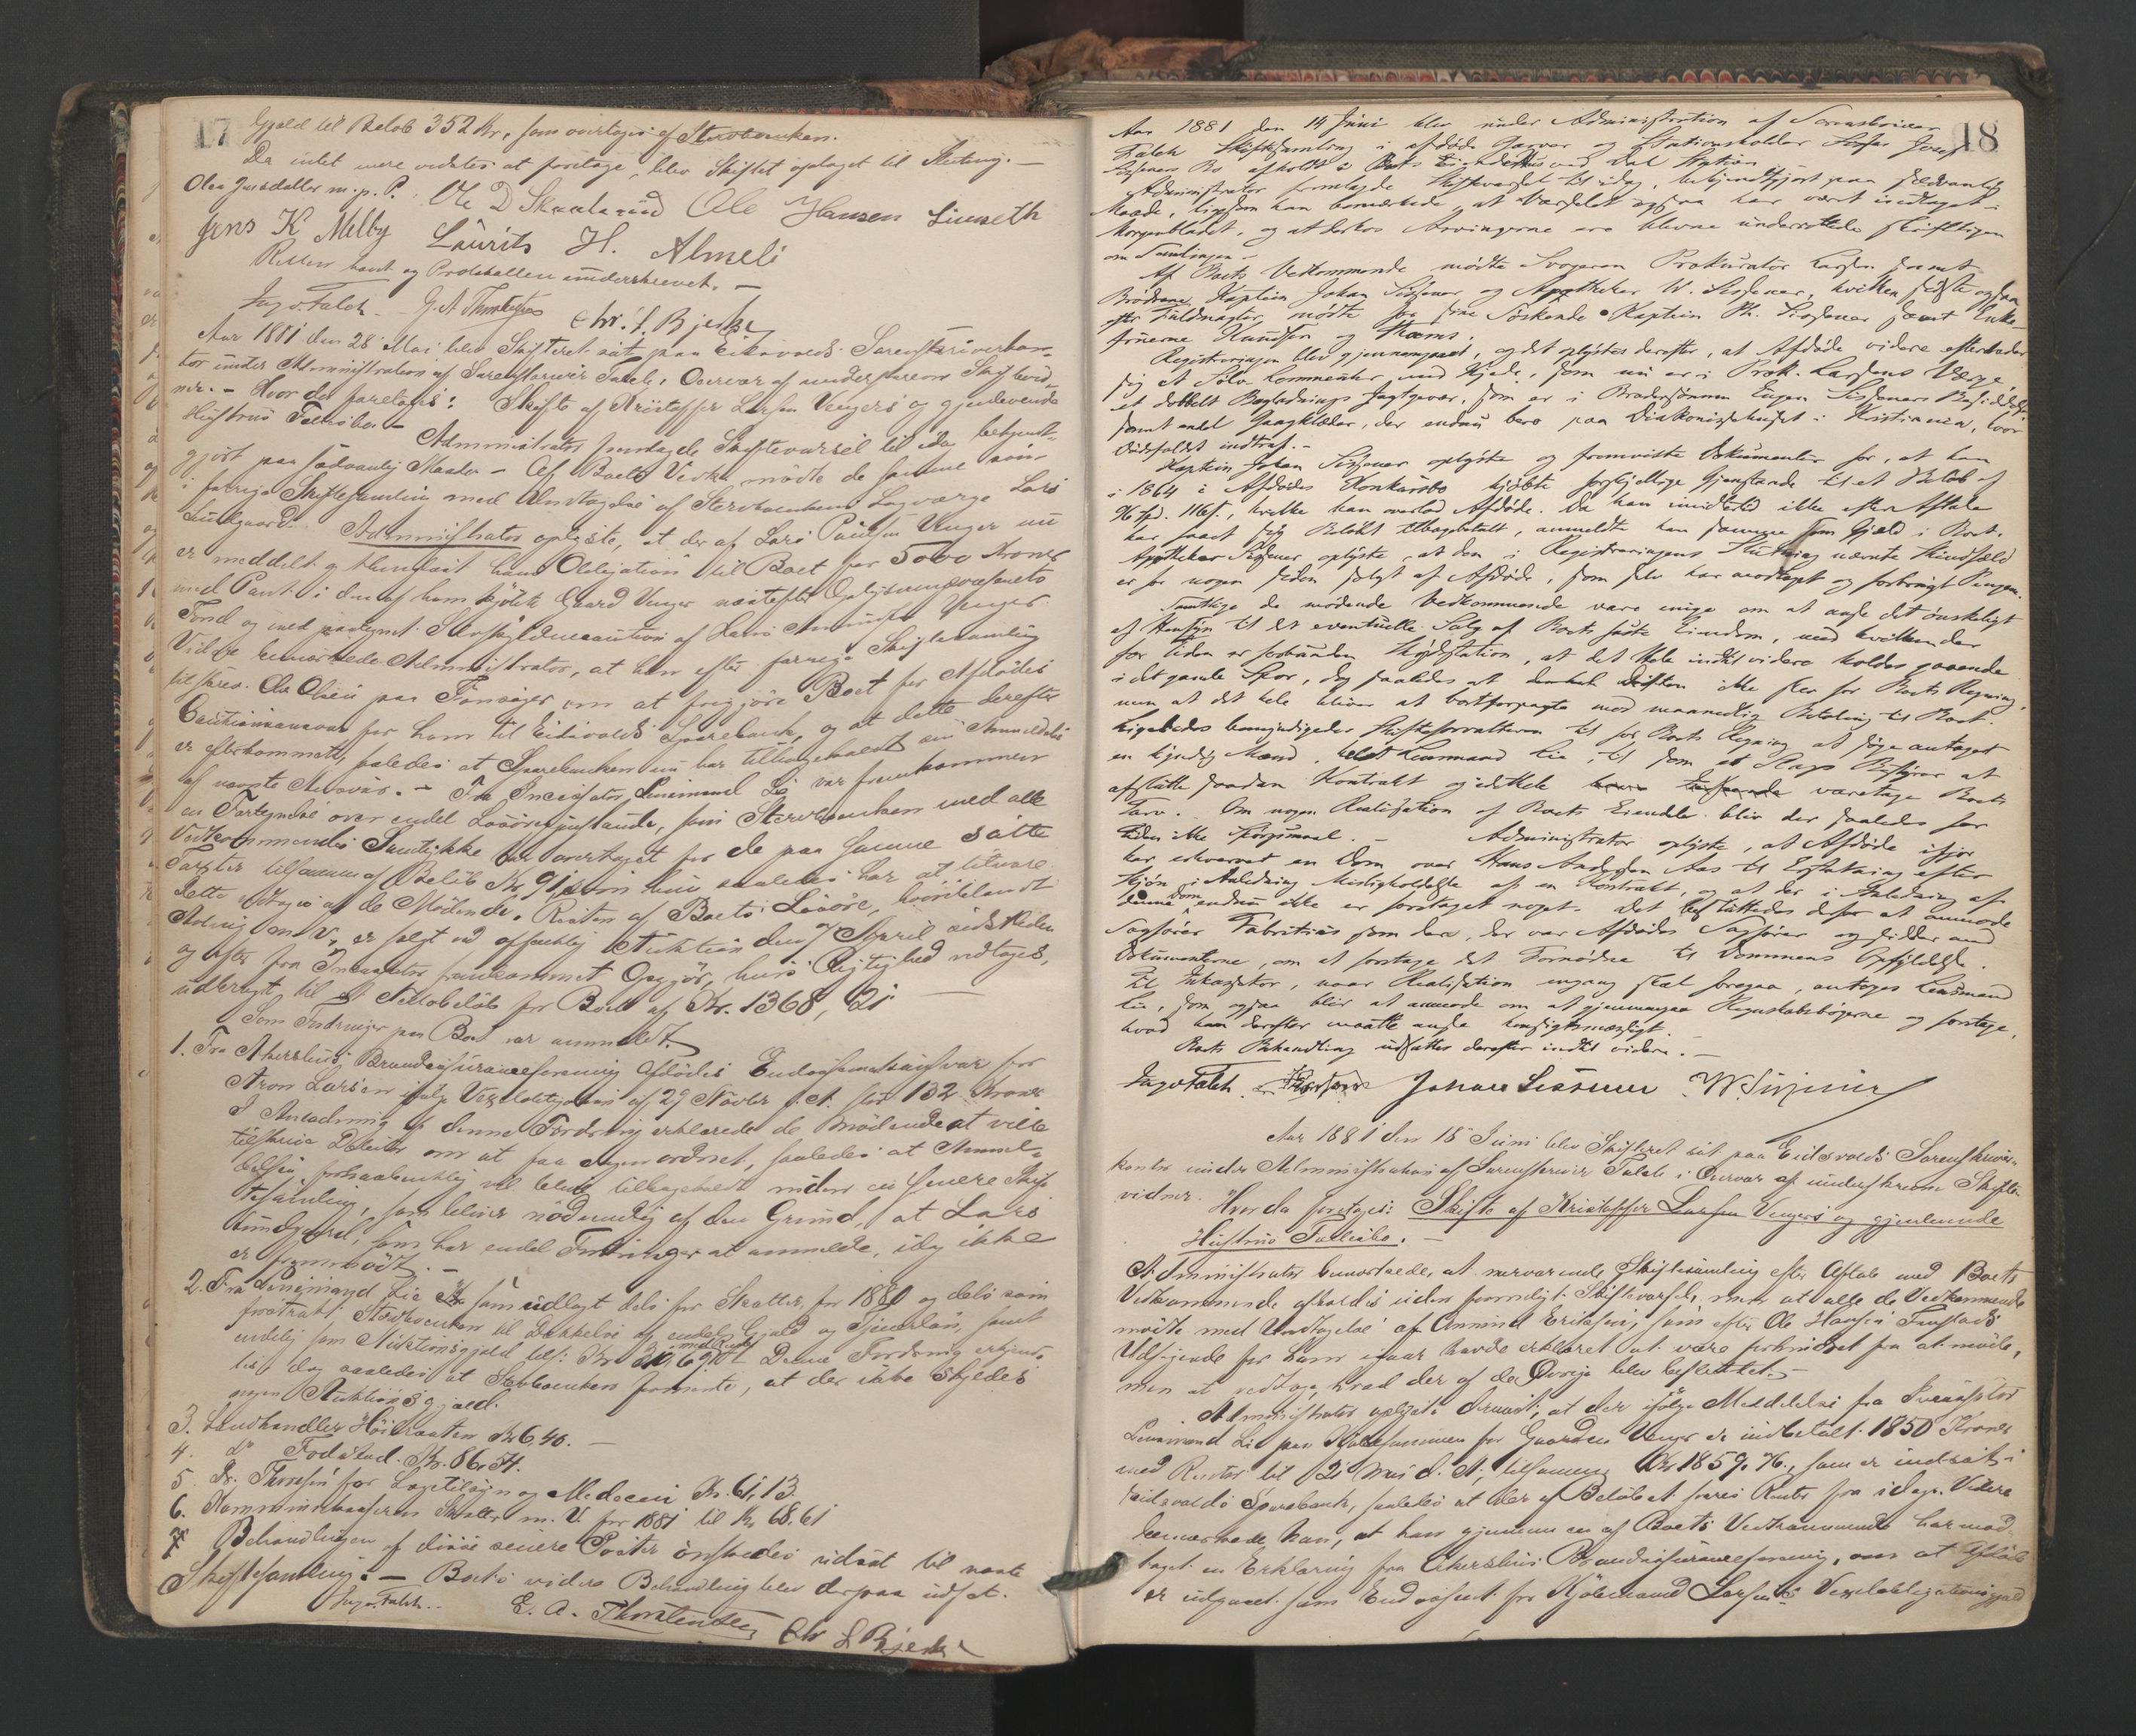 17
Gjæld til Beløb 352 Kr, som overtages af Stervboenken.
Da intet mere vidstes at foretage, blev Skiftet optaget til Slutning. —
Olea Jensdatter m. p. P. Ole D Skaalerud Ole Hansen Linseth
Jens K Melby Laurits H. Almeli
Retten hævet og Protokollen underskrevet. —
Inge Falch. G. A Thorstensen Chr. L. Bjerke
Aar 1881 den 28 Mai blev Skifteret sat paa Eidsvolds Sorenskriverkon-
tor under Administration af Sorenskriver Falch, i Overvær af underskrevne Skiftevid-
ner. — Hvor da foretoges: Skifte af Kristoffer Larsen Vengers og gjenlevende
Hustrus Fællesbo. —
Administrator fremlagde Skiftevarsel til idag bekjendt-
gjort paa sædvanlig Maade — Af Boets Vedkommende mødte de samme som
i forrige Skiftesamling med Undtagelse af Stervboenkens Laugværge Lars
Lundgaard. Administrator oplyste, at der af Lars Paulsen Venger nu
er meddelt og thinglæst ham Obligation til Boet for 5000 Kroner
med Pant i den af ham kjøbte Gaard Venger næstefter Oplysningsvæsenets
Fond og med paategnet Selvskyldnercaution af Lars Amundsen Venger
Videre bemærkede Administrator, at han efter forrige Skiftesamling
tilskrev Ole Olsen paa Finsager om at frigjøre Boet for Afdødes
Cautionsansvar for ham til Eidsvolds Sparebank, og at dette derefter
er efterkommet, saaledes at Sparebanken nu har tilbagekaldt sin Anmeldelse
af nævnte Ansvar. — Fra Incassator Lensmand Lie var fremkommen
en Fortegnelse over endel Løsøregjenstande, som Stervboenken med alle
Vedkommendes Samtykke har overtaget for de paa samme satte
Taxter tilsammen af Beløb Kr 91, som hun saaledes har at tilsvare.
Dette vedtages af de Mødende. Resten af Boets Løsøre, hvoriblandt
Avling m. V., er solgt ved offentlig Auktion den 7 April sidstleden
og efter fra Incassator fremkommet Opgjør, hvis Rigtighed vedtoges,
udbragt til et Nettobeløb for Boet af Kr. 1368, 21
Som Fordringer paa Boet var anmeldt.
1. Fra Akershus Brandassuranceforening Afdødes Endossementsansvar for
Aron Larsen ifølge Vexelobligation af 29 Novbr f. A. stor 132 Kroner
I Anledning af denne Fordring erklærede de Mødende at ville
tilskrive Debitor om at faa Sagen ordnet, saaledes at Anmel-
delsen forhaabentlig vil blive tilbagekaldt inden en senere Skif-
tesamling, som bliver nødvendig af den Grund, at Lars
Lundgaard, som har endel Fordringer at anmelde, idag ikke
er fremmødt. —
2. Fra Lensmand Lie som udlagt dels for Skatter for 1880 og dels som
forstrakt Stervboenken til Dækkelse af endel Gjæld og Tjenerløn, samt
endelig som Auktionsgjæld tils: Kr Denne Fordring erkjend-
tes dog saaledes at Stervboenken formente, at der ikke skyldes
nogen Auktionsgjæld.
3. Landhandler Høibraaten Kr 6,40. —
4. do Fodstad. Kr. 86,54.
5. Dr. Thoresen for Lægetilsyn og Medecin Kr. 61,13.
6. Kommunekassereren Skatter m. V. for 1881 til Kr 68,61
7. Behandlingen af disse senere Poster ønskedes udsat til næste
Skiftesamling. — Boets videre Behandling blev derpaa udsat.
Inge Falch. E. A. Thorstensen Chr L Bjerke
18
Aar 1881 den 14 Juni blev under Administration af Sorenskriver
Falch Skiftesamling i afdøde Jægver og Stationsholder
Sissener Bo afholdt i Boets Eiendom ved Dal Station
Administrator fremlagde Skiftevarsel til idag, bekjendtgjort paa sædvanlig
Maade, ligesom han bemærkede, at Varselet ogsaa har været indtaget i
Morgenbladet, og at desuden Arvingerne ere blevne underrettede skriftligen
om Samlingen. —
Af Boets Vedkommende mødte Svogeren Prokurator Larsen samt
Brødrene Kaptein Johan Sissener og Apotheker W. Sissener, hvilken sidste ogsaa
efter Fuldmagter mødte for sine Søskende Kaptein Ph. Sissener samt Enke-
fruerne Knudsen og Harms.
Registreringen blev gjennemgaaet, og det oplystes derefter, at Afdøde videre efterlader
sig et Sølv Lommeuhr med Kjede, som nu er i Prok. Larsens Værge,
et dobbelt Bagladnings Jagtgevær, som er i Brodersønnen Eugen Sisseners Besiddelse
samt endel Gangklæder, der endnu bero paa Diakonissehuset i Kristiania, hvor
Dødsfaldet indtraf. —
Kaptein Johan Sissener oplyste og fremviste Dokumenter for, at han
i 1864 i Afdødes Konkursbo kjøbte forskjellige Gjenstande til et Beløb af
96 Spd. 116 s., hvilke han overlod Afdøde. Da han imidlertid ikke efter Aftale
har faaet sig Beløbet tilbagebetalt, anmeldte han samme som Gjæld i Boet.
Apotheker Sissener oplyste, at den i Registreringens Slutning nævnte Skindfæld
er for nogen Tiden solgt af Afdøde, som selv har modtaget og forbrugt Pengene.
Samtlige de mødende Vedkommende vare enige om at anse det ønskeligt
af Hensyn til et eventuelle Salg af Boets faste Eiendom, med hvilken der
for Tiden er forbunden Skydsstation, at det Hele indtil videre holdes gaaende
i det gamle Spor, dog saaledes at Driften ikke sker for Boets Regning,
men at det hele bliver at bortforpagte mod maanedlig Betaling til Boet.
Ligeledes bemyndigedes Skifteforvalteren til for Boets Regning at søge antaget
en kyndig Mand, helst Lensmand Lie, til som et Slags Bestyrer at
afslutte saadan Kontrakt og idethele varetage Boets
Tarv. Om nogen Realisation af Boets Eiendele blir der saaledes for
Tiden ikke Spørgsmaal. — Administrator oplyste, at Afdøde ifjor
har erhvervet en Dom over Hans Andersen Aas til Erstatning efter
Skjøn i Anledning Misligholdelse af en Kontrakt, og at der i Anledning af
denne Dom endnu ikke er foretaget noget. Det besluttedes derfor at anmode
Sagfører Fabritius som den, der var Afdødes Sagfører og sidder med
Dokumenterne, om at foretage det Fornødne til Dommens Opfyldelse.
Til Inkassator, naar Realisation engang skal foregaa, antoges Lensmand
Lie, som ogsaa blir at anmode om at gjennemgaa Regnskabsbøgerne og foretage,
hvad han derefter maatte anse hensigtsmæssigt.
Boets Behandling udsattes derefter indtil videre. —
Inge Falch. Johan Sissener W. Sissener
Aar 1881 den 18 Juni blev Skifteret sat paa Eidsvolds Sorenskriver-
kontor under Administration af Sorenskriver Falch i Overvær af underskrevne Skifte-
vidner. Hvorda foretoges: Skifte af Kristoffer Larsen Vengers og gjenlevende
Hustrus Fællesbo. —
Administrator bemærkede, at nærværende Skiftesamling efter Aftale med Boets
Vedkommende afholdes uden formeligt Skiftevarsel, men at alle de Vedkommende
mødte med Undtagelse af Amund Eriksen, som efter Ole Hansen Finstads
Udsigende for ham igaar havde erklæret at være forhindret fra at møde,
men at vedtage, hvad der af de Øvrige blev besluttet. —
Administrator oplyste dernæst, at der ifølge Meddelelse fra Incassator
Lensmand Lie paa Kjøbesummen for Gaarden Venger er indbetalt 1850 Kroner
med Renter til 21 Mai d. A., tilsammen Kr 1859.76, som er indsat i
Eidsvolds Sparebank, saaledes at der af Beløbet svares Renter fra idag. Videre
bemærkede han, at han gjennem en af Boets Vedkommende har mod-
taget en Erklæring fra Akershus Brandassuranceforening, om at Afdøde
er udgaaet som Endossent for Kjøbmand Larsens Vexelobligationsgjæld